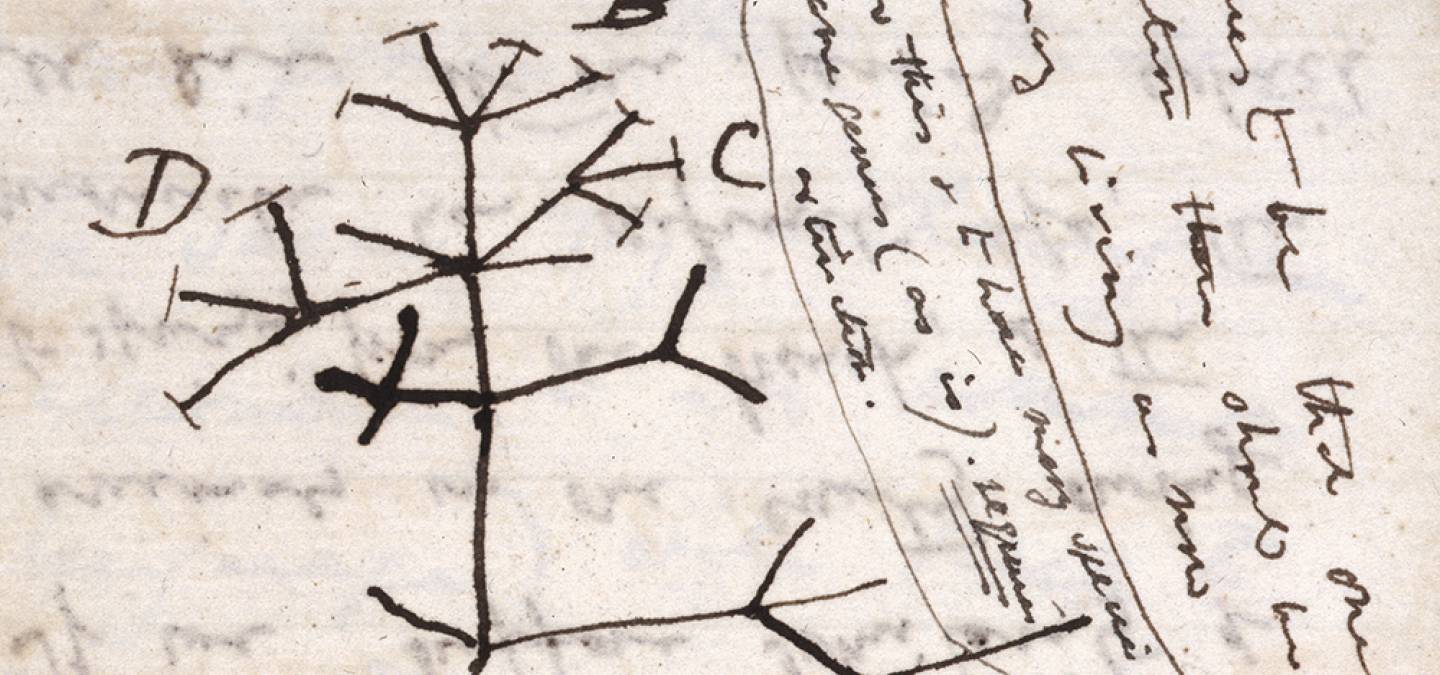 D
C
be that one
then should be
living as now
this & to have many species
same genus (as is). requires
extinction.